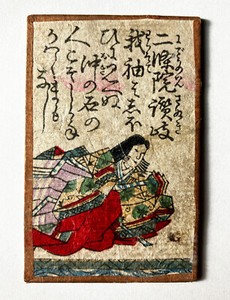 二條院讃岐
我袖はしほ
ひに見へぬ
沖の石の
人こそしらね
かわくまも
なし